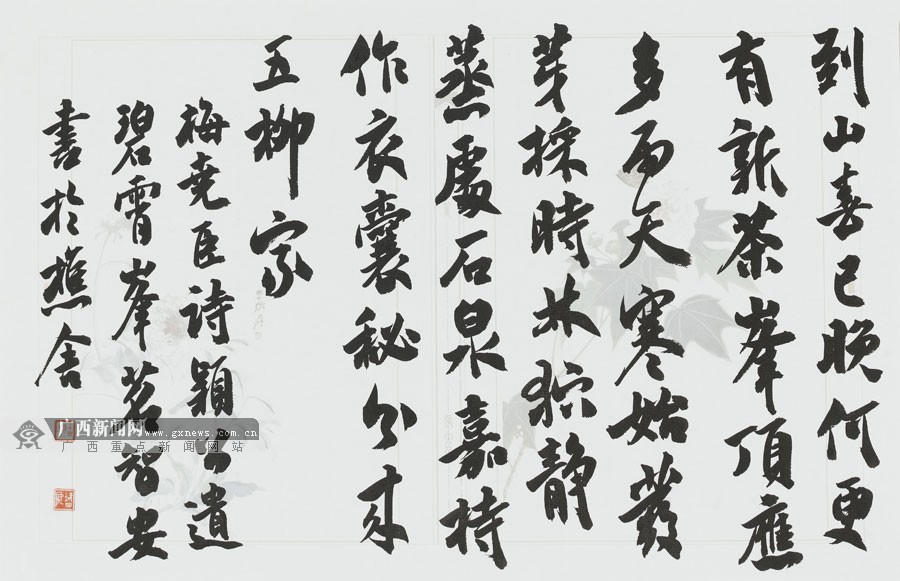 到山春已晚何更
有新茶峯頂應
多雨天寒始發
芽採時林狖静
蒸處石泉嘉持
作衣囊秘分来
五柳家
梅堯臣詩穎公遺
碧霄峯茗智安
書於樵舍
广西新闻网 www.gxnews.com.cn
广西重点新闻网站